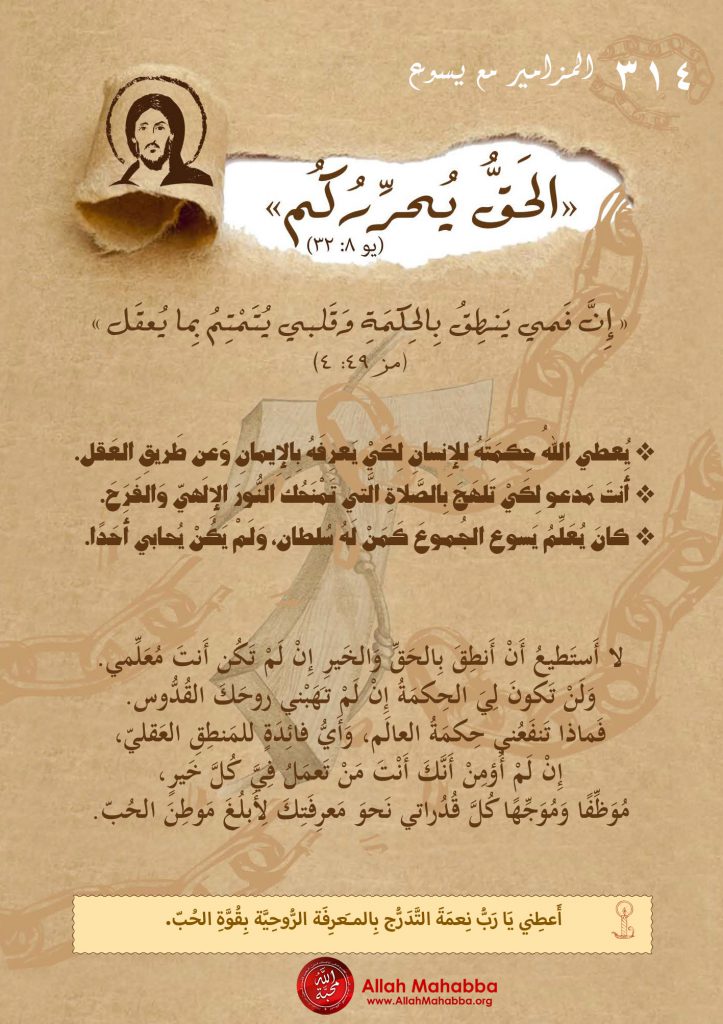 ٣١٤ المزامير مع يسوع
«الحَقُّ يُحرِّرُكُم»
(يو ٨: ٣٢)
« إِنَّ فَمي يَنطِقُ بِالحِكمَةِ وَقَلبي يُتَمْتِمُ بِما يُعقَل »
(مز ٤٩: ٤)
❖ يُعطي اللهُ حِكمَتَهُ للإنسان لِكَيْ يَعرفَهُ بالإيمان وَعن طَريق العَقل.
❖ أنتَ مَدعو لِكَيْ تَلهَجَ بِالصَّلاةِ الَّتي تَمْنَحُك النُّور الإلَهيّ وَالفَرَحَ.
❖ كانَ يُعَلِّمُ يَسوع الجُموعَ كَمَنْ لهُ سُلطان، وَلَمْ يكُنْ يُحابي أحَدًا.
لا أَستَطيعُ أَنْ أَنطِقَ بِالحَقِّ وَالخَيرِ إِنْ لَمْ تَكُن أَنتَ مُعَلِّمي.
وَلَنْ تَكونَ لِيَ الحِكمَةُ إِنْ لَمْ تَهَبْني روحَكَ القُدُّوس.
فَماذا تَنفَعُني حِكمَةُ العالَم، وَأَيُّ فائِدَةٍ للمَنطِقِ العَقليّ،
إِنْ لَمْ أُؤمِنْ أَنَّكَ أَنْتَ مَنْ تَعمَلُ فِيَّ كُلَّ خَيرٍ،
مُوَظِّفًا وَمُوَجِّهًا كُلَّ قُدُراتي نَحوَ مَعرِفَتِكَ لِأَبلُغَ مَوطِنَ الحُبّ.
أَعطِني يَا رَبُّ نِعمَةَ التَّدَرُّج بِالمَعرِفَة الرُّوحِيَّة بِقُوَّةِ الحُبّ.
الله محبة
Allah Mahabba
www.AllahMahabba.org